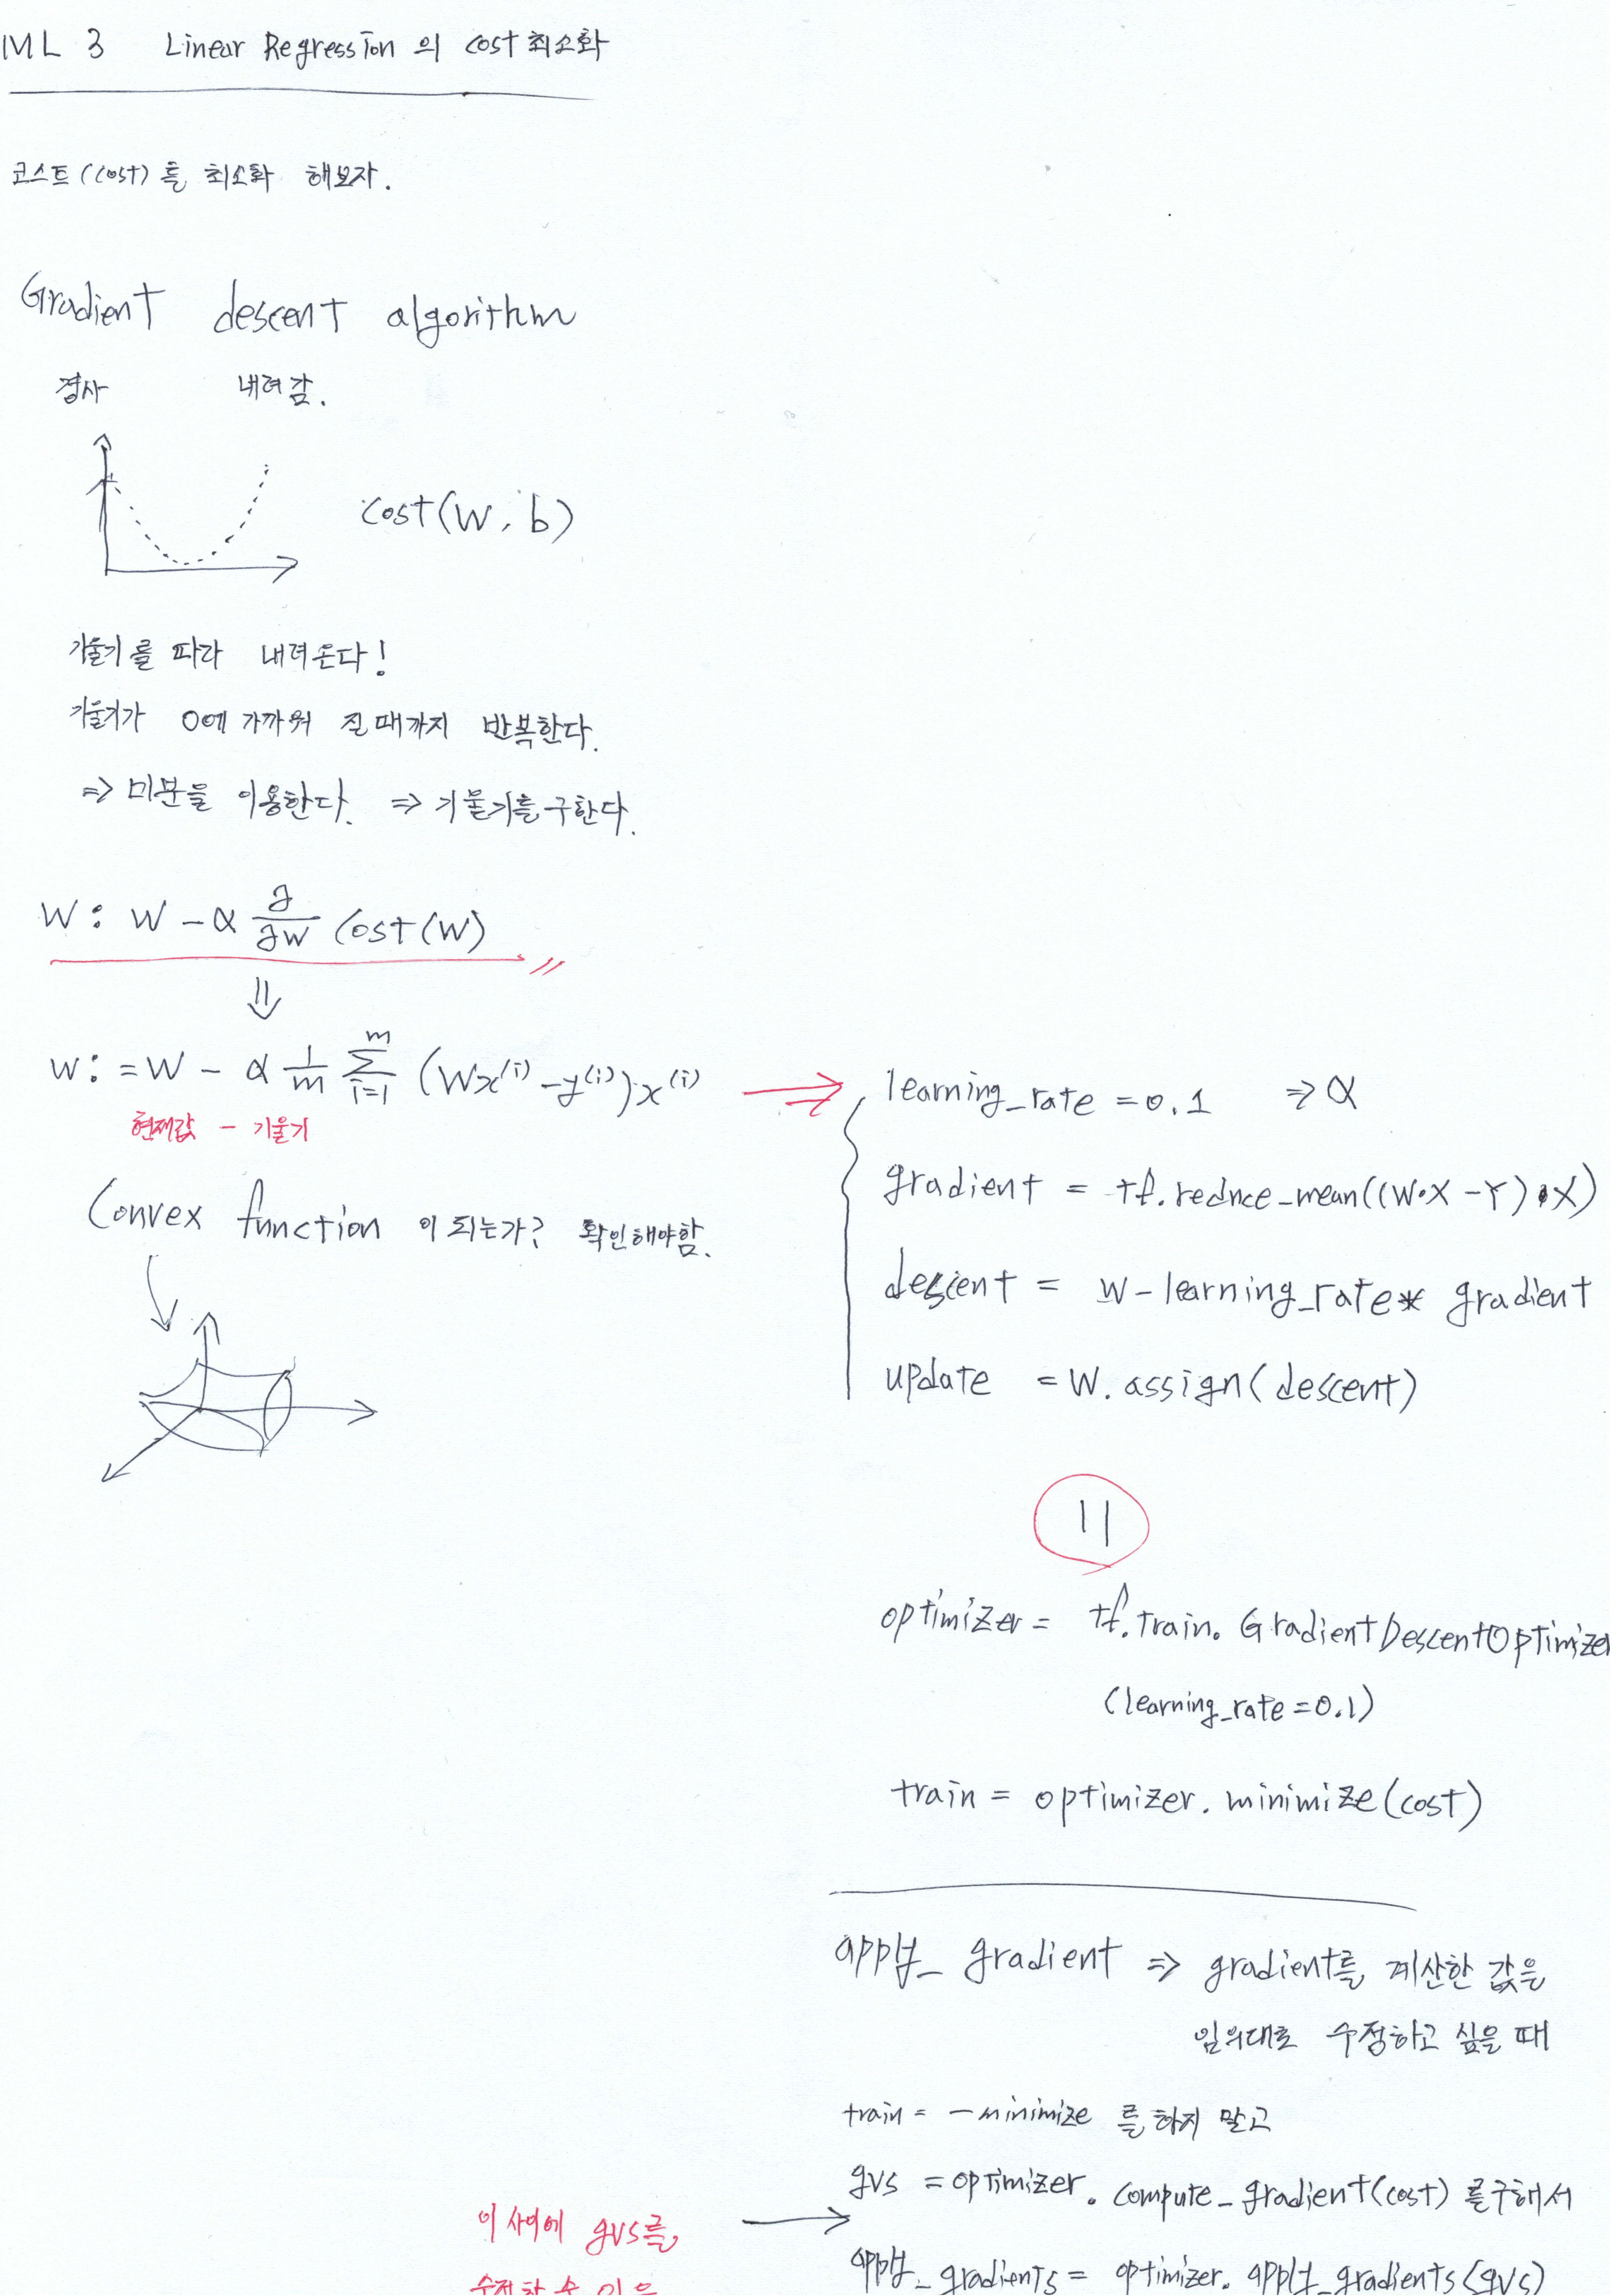 ML 3 Linear Regression 의 cost 최소화
코스트(cost)를 최소화 해보자.
Gradient descent algorithm
경사 내려감.
cost(W, b)
기울기를 따라 내려온다!
기울기가 0에 가까워 질때까지 반복한다.
⇒ 미분을 이용한다. ⇒ 기울기를 구한다.
W: W - α ∂/∂W Cost(W)
⇓
W: = W - α 1/m Σ i=1 m (Wx^(i) - y^(i))x^(i)
현재값 - 기울기
Convex function 이 되는가? 확인해야함.
learning_rate = 0.1 ⇒ α
gradient = tf.reduce_mean((W·X - Y)·X)
descent = W - learning_rate * gradient
update = W.assign(descent)
||
optimizer = tf.train.GradientDescentOptimizer
(learning_rate=0.1)
train = optimizer.minimize(cost)
apply_gradient ⇒ gradient를 계산한 값을
임의대로 수정하고 싶을 때
train = -minimize 를 하지 말고
gvs = optimizer.compute_gradient(cost) 를 구해서
이 사이에 gvs를 →
apply_gradients = optimizer.apply_gradients(gvs)
수정할 수 있음